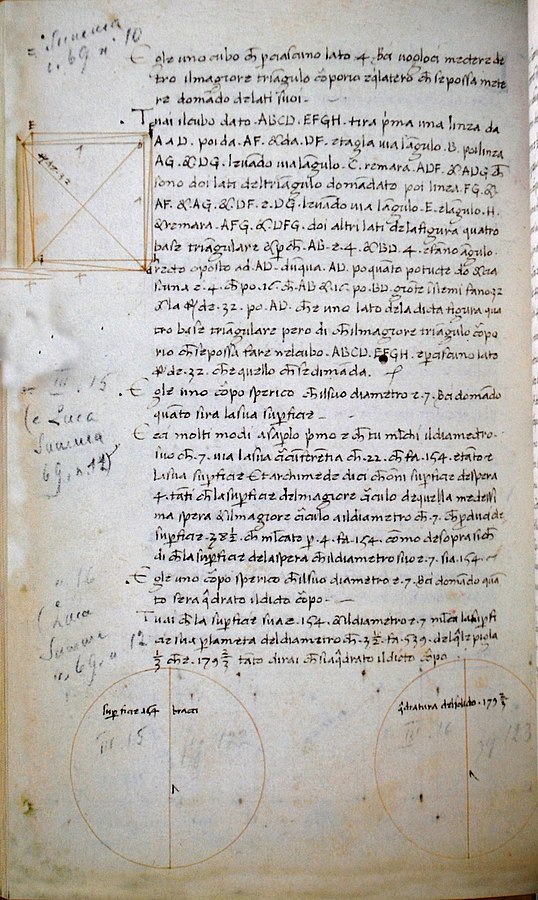 Summa
c. 69 n. 10
E gle uno cubo ch̄ p̄ ciascuno lato .4. Bci vogloci mectere de
tro il magiore triāgulo cōporio eq̄latero ch̄ se possa mete
re domādo de lati suoi
Tu ai il cubo dato .ABCD.EFGH. tira p̄ma una linea da
A a D. poi da .AF. & da .DF. e tagla via lāgulo .B. poi linea
AG. & DG. levādo via lāgulo .C. remarā .ADF. & ADG ch̄
sono doi lati del triāgulo domādato poi linea .FG. &
AF. & AG. & DF. e DG. levādo via lāgulo .E. e lāgulo .H.
& remara .AFG. & DFG. doi altri lati de la figura quatro
base triāgulare & p̄ ch̄ .AB. e .4. & BD .4. e fano āgulo
recto oposto ad .AD. duq̄ua .AD. po quāto
.4. ch̄ po .16. ch̄ AB & 16. po .BD. giōte īsiemi fano 32
& la de .32. po .AD. ch̄ e uno lato de la dicta figura qua
tro base triāgulare pero di ch̄ il magiore triāgulo cōpo
rio ch̄ se possa fare nel cubo .ABCD.EFGH. e p̄ ciascuno lato
de .32. ch̄ e quello ch̄ se dimāda.
III . 15
(e Luca
Summa
69, n 11)
E gle uno cōpo sperico ch̄ il suo diametro e .7. Bci domādo
quāto sira la sua sup̄ficie
E ci molti modi a sap̄lo p̄mo e ch̄ tu m̄chi il diametro
suo ch̄ .7. via la sua c̄cūferētia ch̄ .22. ch̄ fa .154. e tāto e
la sua sup̄ficie Et archimede dici ch̄ oni sup̄ficie de spera
4. tāti ch̄ la sup̄ficie del magiore c̄culo de quella medesi
ma spera & il magiore c̄culo a il diametro ch̄ .7. ch̄ p̄duci de
sup̄ficie .38½. ch̄ m̄cato p̄ .4. fa .154. comō de sopra sich̄
di ch̄ la sup̄ficie de la spera ch̄ il diametro suo e .7. sia .154.
16
(Luca
Summa
c. 69. n 12
E gle uno cōpo sperico ch̄ il suo diametro e .7. Bci domādo qua
to sera q̄drato il dicto cōpo
Tu ai ch̄ la sup̄ficie sua e .154. & il diametro e .7 m̄ca la sup̄fi
cie sua p̄ la meta del diametro ch̄ .3½. fa .539. de q̄l e pigla
⅓ ch̄ e .179⅔ tāto dirai ch̄ sia q̄drato il dicto cōpo
sup̄ficie 154 bracci
q̄dratura del solido .179 ⅔
III . 15
122
III . 16
123